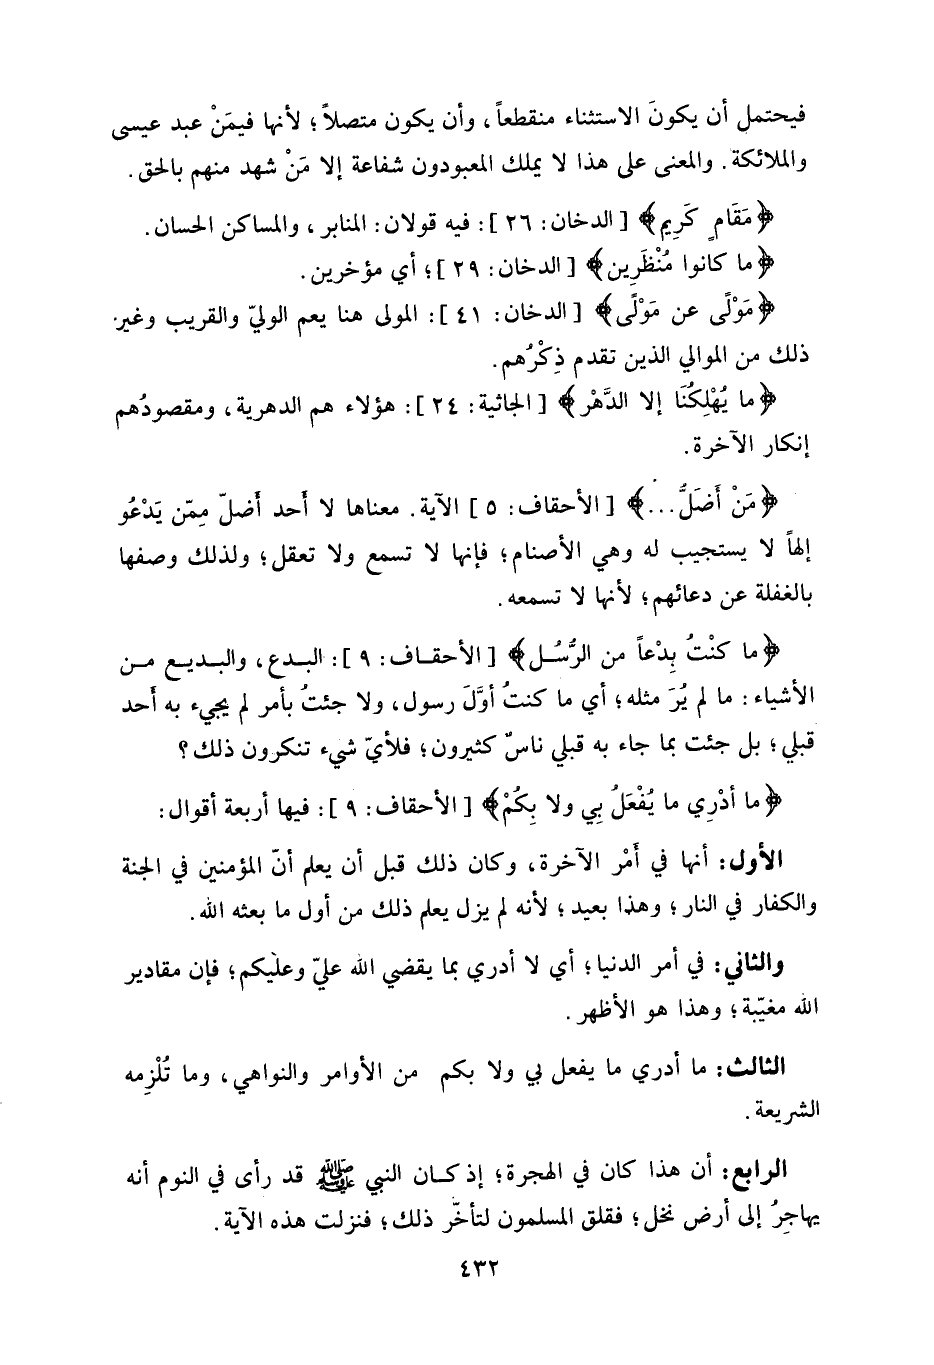 فيحتمل أن يكونَ الاستثناء منقطعاً، وأن يكون متصلاً؛ لأنها فيمَنْ عبد عيسى
والملائكة. والمعنى على هذا لا يملك المعبودون شفاعة إلا مَنْ شهد منهم بالحق.
﴿مَقَامٍ كَرِيم﴾ [الدخان: ٢٦]: فيه قولان: المنابر، والمساكن الحسان.
﴿ما كانوا مُنْظَرِين﴾ [الدخان: ٢٩]؛ أي مؤخرين.
﴿مَوْلًى عن مَوْلًى﴾ [الدخان: ٤١]: المولى هنا يعم الوليّ والقريب وغير
ذلك من الموالي الذين تقدم ذِكْرُهم.
﴿ما يُهْلِكُنَا إلا الدَّهْر﴾ [الجاثية: ٢٤]: هؤلاء هم الدهرية، ومقصودُهم
إنكار الآخرة.
﴿مَنْ أَضَلُّ...﴾ [الأحقاف: ٥] الآية. معناها لا أحد أَضلّ مِمّن يَدْعُو
إلهاً لا يستجيب له وهي الأصنام؛ فإنها لا تسمع ولا تعقل؛ ولذلك وصفها
بالغفلة عن دعائهم؛ لأنها لا تسمعه.
﴿ما كنْتُ بِدْعاً من الرُّسُل﴾ [الأحقاف: ٩]: البدع، والبديع من
الأشياء: ما لم يُرَ مثله؛ أي ما كنتُ أوَّلَ رسول، ولا جئتُ بأمر لم يجيء به أَحد
قبلي؛ بل جئت بما جاء به قبلي ناسٌ كثيرون؛ فلأيّ شيء تنكرون ذلك؟
﴿ما أدْرِي ما يُفْعَلُ بِي ولا بِكُمْ﴾ [الأحقاف: ٩]: فيها أربعة أقوال:
الأول: أنها في أَمْر الآخرة، وكان ذلك قبل أن يعلم أنّ المؤمنين في الجنة
والكفار في النار؛ وهذا بعيد؛ لأنه لم يزل يعلم ذلك من أول ما بعثه الله.
والثاني: في أمر الدنيا؛ أي لا أدري بما يقضي الله عليّ وعليكم؛ فإن مقادير
الله مغيّبة؛ وهذا هو الأظهر.
الثالث: ما أدري ما يفعل بي ولا بكم من الأوامر والنواهي، وما تُلْزِمه
الشريعة.
الرابع: أن هذا كان في الهجرة؛ إذ كان النبي ﷺ قد رأى في النوم أنه
يهاجِرُ إلى أرض نخل؛ فقلق المسلمون لتأخّر ذلك؛ فنزلت هذه الآية.
٤٣٢